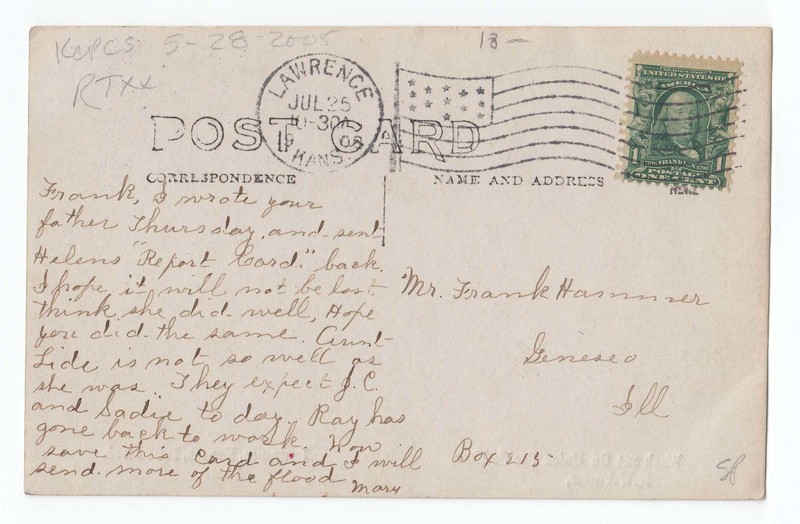 KCPCS 5-28-2005
18-
RTXX
LAWRENCE
JUL 25
10-30A
1908
KANS.
UNITED STATES OF
AMERICA
1 1
POSTAGE
ONE CENT
POST CARD
CORRESPONDENCE
NAME AND ADDRESS
HERE
Frank, I wrote your
father Thursday and sent
Helens "Report Card." back.
I hope it will not be lost
think she did well, Hope
you did the same. Aunt
Lide is not so well as
she was. They expect J.C.
and Sadie to day. Ray has
gone back to work. Now
save this card and I will
send more of the flood
Mary
Mr. Frank Hammer
Geneseo
Ill
Box 215
SP